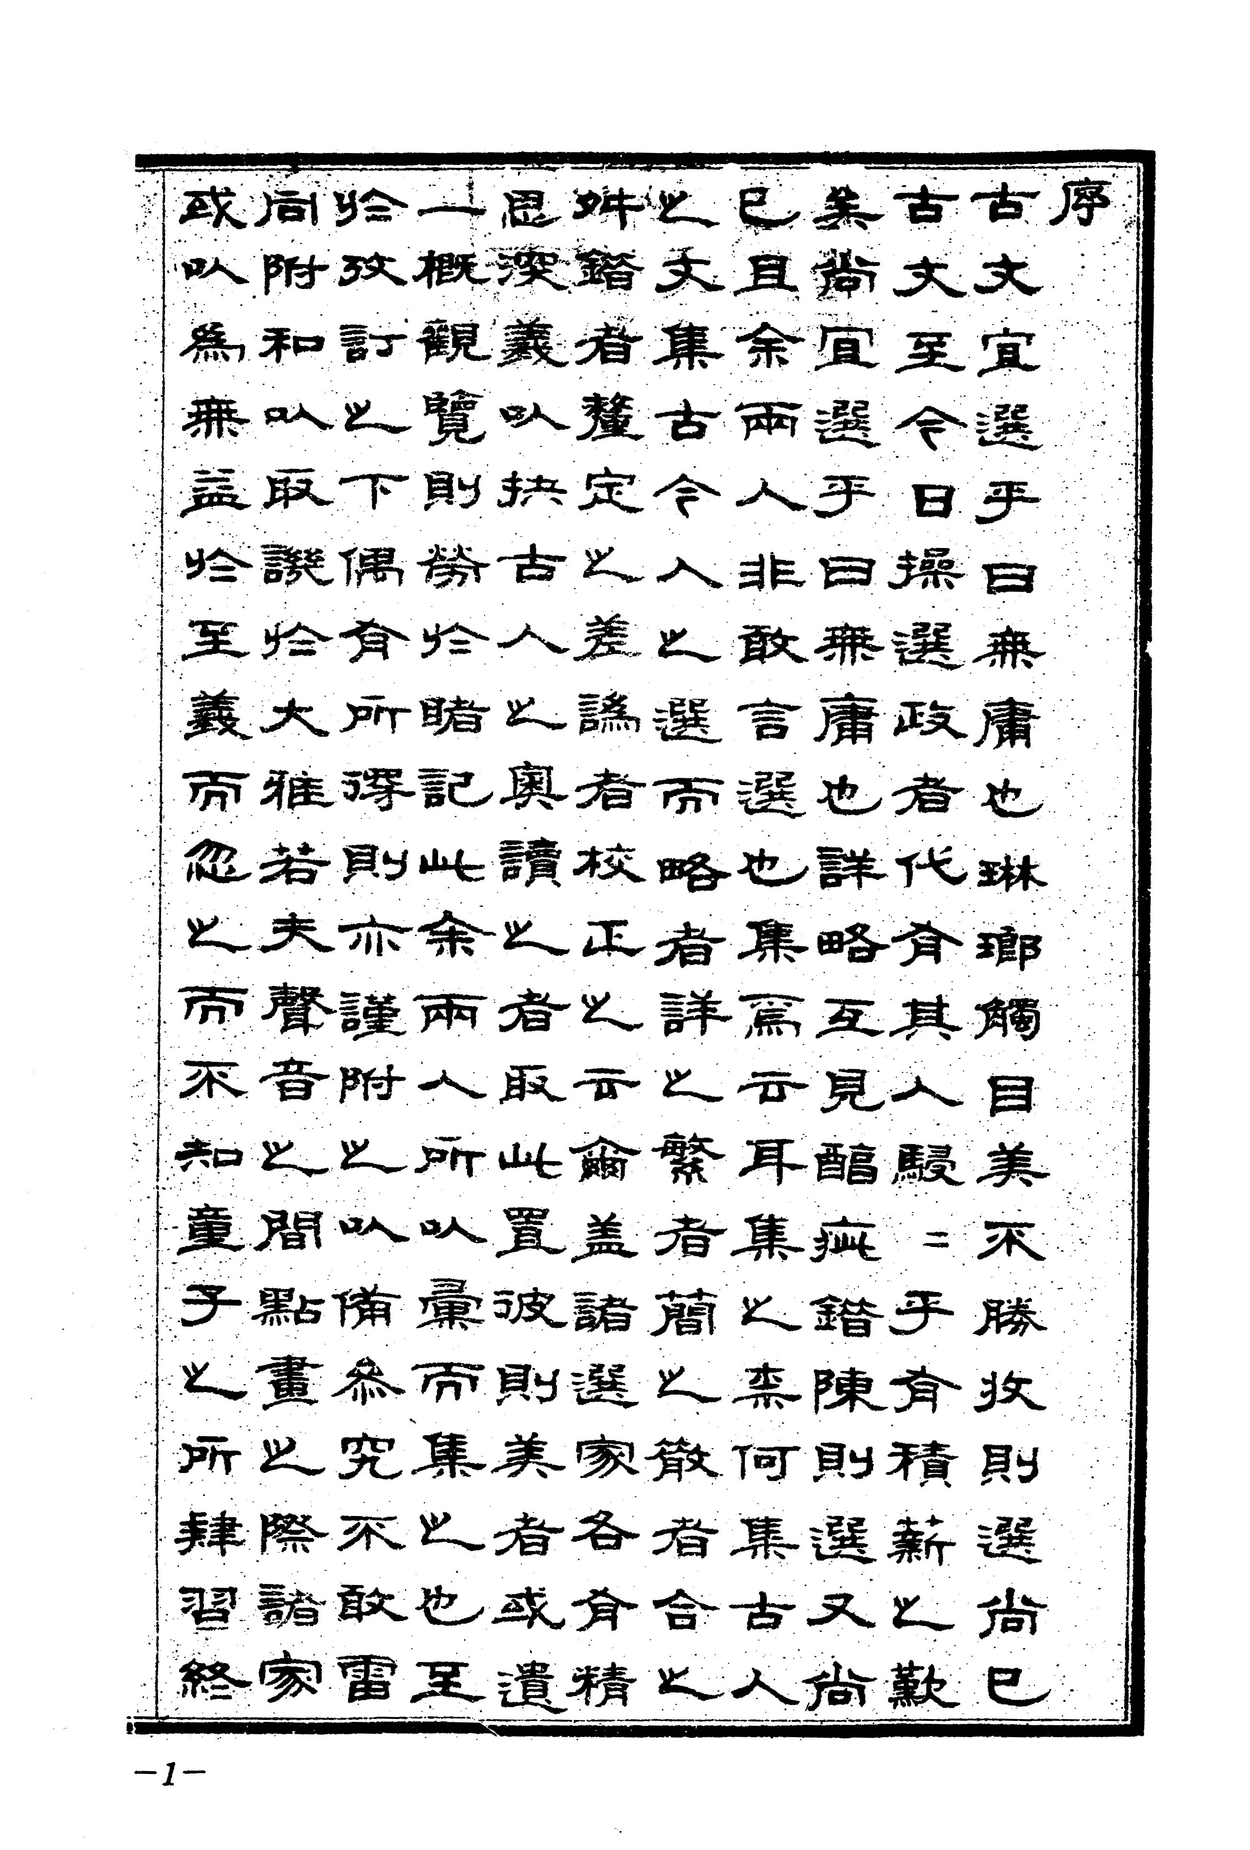 序
古文宜選乎曰無庸也琳瑯觸目美不勝收則選尚已
古文至今日操選政者代有其人駸〻乎有積薪之歎
矣尚宜選乎曰無庸也詳略互見醕疵錯陳則選又尚
已且余兩人非敢言選也集焉云耳集之柰何集古人
之文集古今人之選而略者詳之繁者簡之散者合之
舛錯者釐定之差譌者校正之云爾蓋諸選家各有精
思深義以抉古人之奧讀之者取此置彼則美者或遺
一概觀覽則勞於睹記此余兩人所以彙而集之也至
於攷訂之下偶有所得則亦謹附之以備參究不敢雷
同附和以取譏於大雅若夫聲音之間點畫之際諸家
或以為無益於至義而忽之而不知童子之所肄習終
-1-